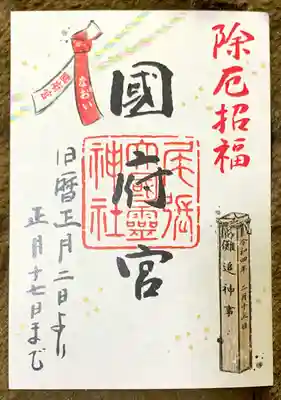 除厄招福
令和四年 二月十三日
儺追神事
國府宮
尾張
大國靈
神社
なおい
國府宮
旧暦正月二日より
正月十七日まで